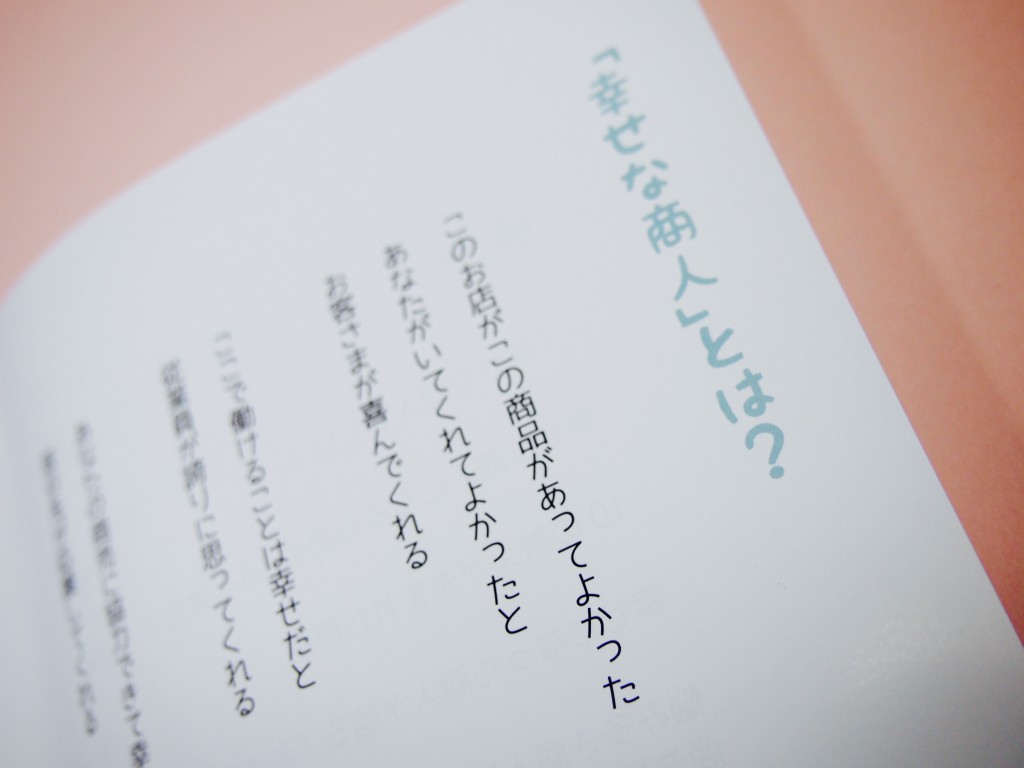 「幸せな商人」とは？
このお店がこの商品があってよかった
あなたがいてくれてよかったと
お客さまが喜んでくれる
ここで働けることは幸せだと
従業員が誇りに思ってくれる